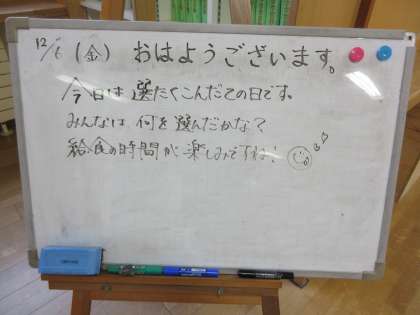 12/6(金) おはようございます。
今日は選たくこんだての日です。
みんなは何を選んだかな?
給食の時間が楽しみですね!